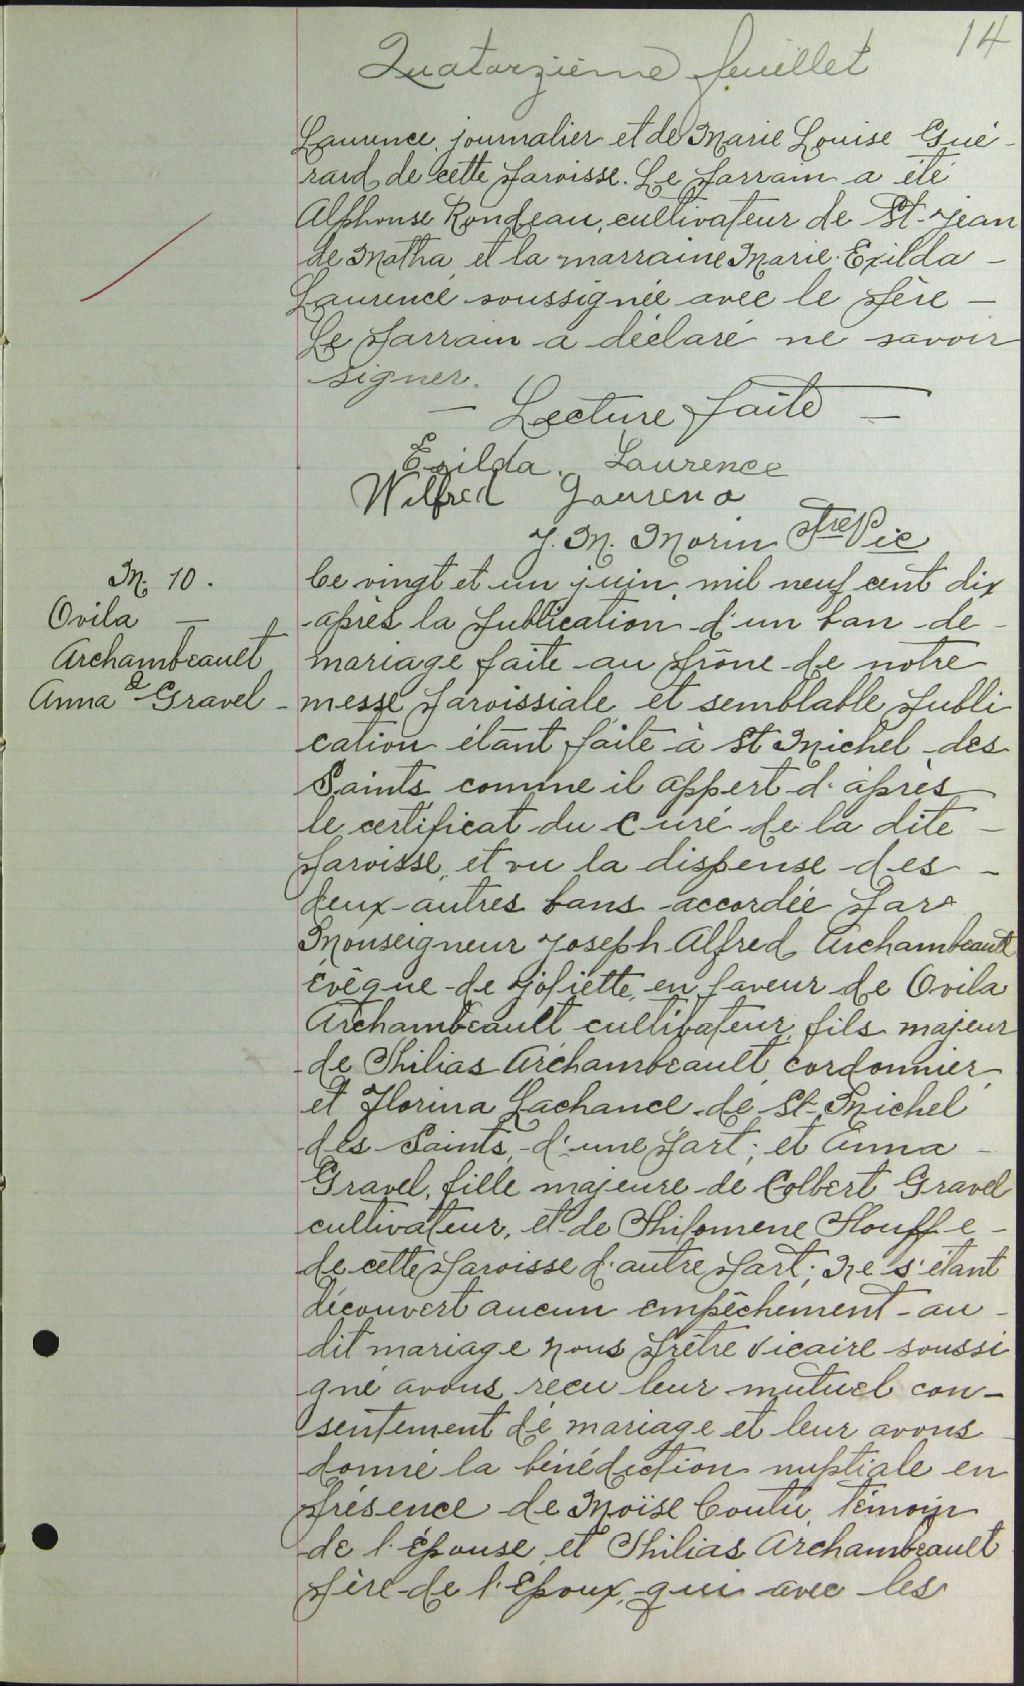 14
Quatorzième feuillet
Laurence, journalier et de Marie Louise Gué-
rard, de cette paroisse. Le parrain a été
Alphonse Rondeau, cultivateur de St-Jean
de Matha, et la marraine Marie Exilda -
Laurence soussignée avec le père -
Le parrain a déclaré ne savoir
signer.
- Lecture faite -
Exilda. Laurence
Wilfred
J. M. Morin Ptre Vic
M. 10.
Ovila -
Archambeault
&
Anna Gravel -
Ce vingt et un juin, mil neuf cent dix
après la publication d'un ban de -
mariage faite au prône de notre
messe paroissiale et semblable publi
cation étant faite à St Michel des
Saints comme il appert d'après
le certificat du curé de la dite -
paroisse, et vu la dispense des -
deux autres bans accordée par
Monseigneur Joseph Alfred Archambeault
évêque de Joliette, en faveur de Ovila
Archambeault cultivateur, fils majeur
de Philias Archambeault, cordonnier,
et Florina Lachance de St-Michel
des Saints, d'une part; et Anna -
Gravel, fille majeure de Colbert Gravel
cultivateur, et de Philomene Plouffe -
de cette paroisse d'autre part; ne s'étant
découvert aucun empêchement au -
dit mariage nous prêtre vicaire soussi
gné avons reçu leur mutuel con-
sentement de mariage et leur avons
donné la bénédiction nuptiale en
présence de Moïse Coutu, témoin
de l'épouse, et Philias Archambeault
père de l'Epoux, qui avec les